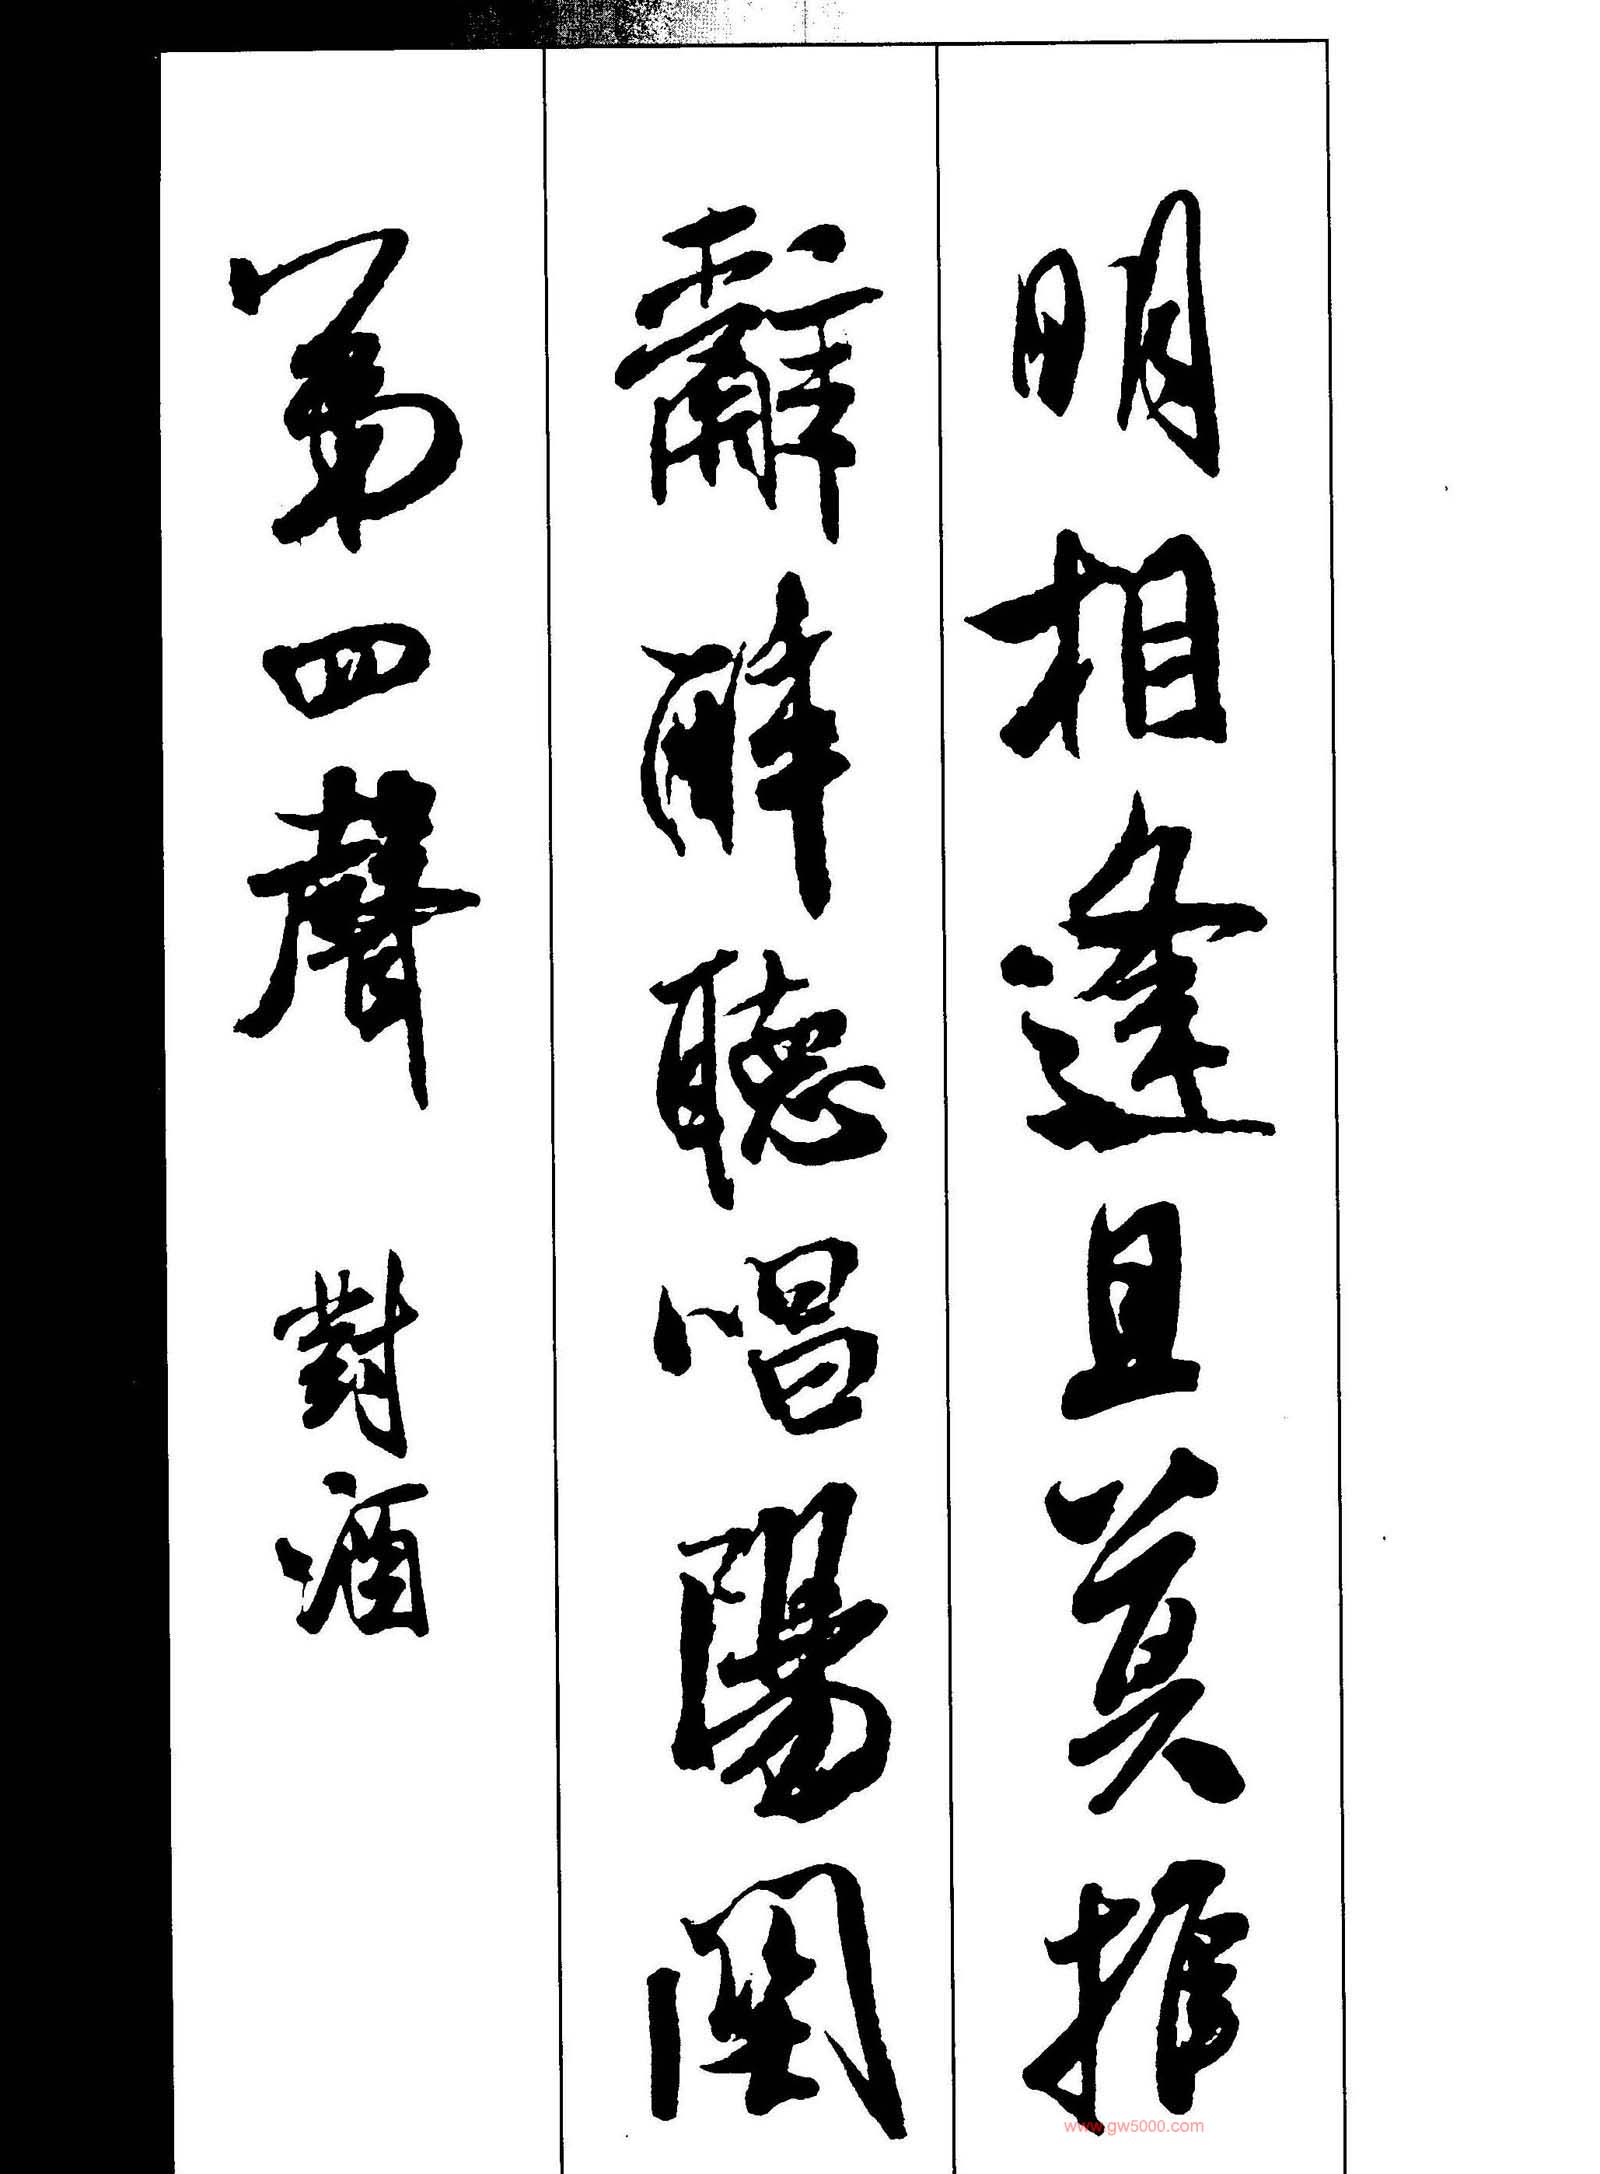 明相逢且莫推
辭醉聽唱陽關
第四聲 對酒
www.gw5000.com